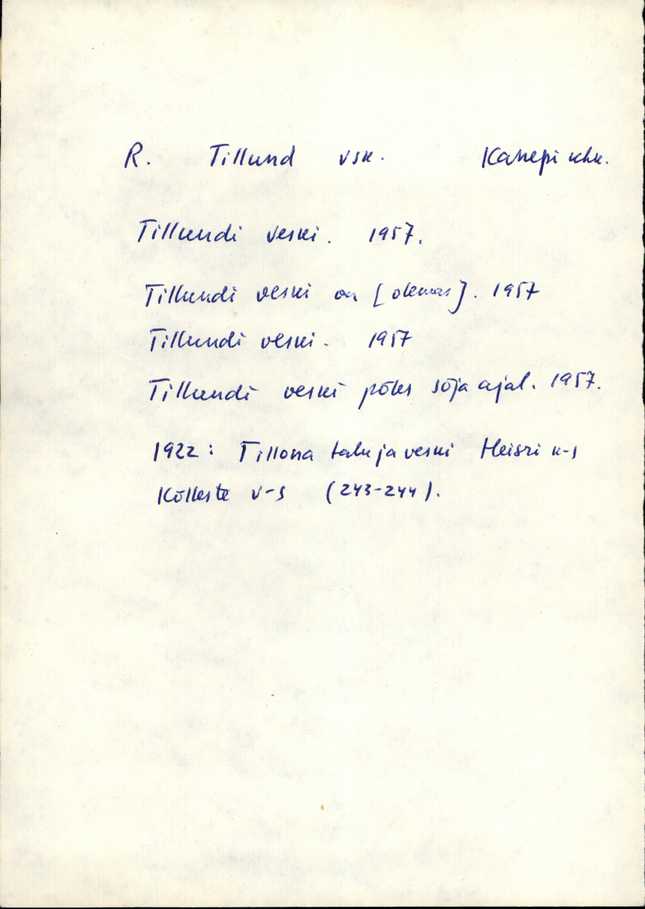 R. Tillund vsk. Kanepi khk.
Tillundi veski. 1957.
Tillundi veski on [olemas]. 1957
Tillundi veski. 1957
Tillundi veski põles sõja ajal. 1957.
1922: Tillona talu ja veski Heisri k-s
Kõlleste v-s (243-244).